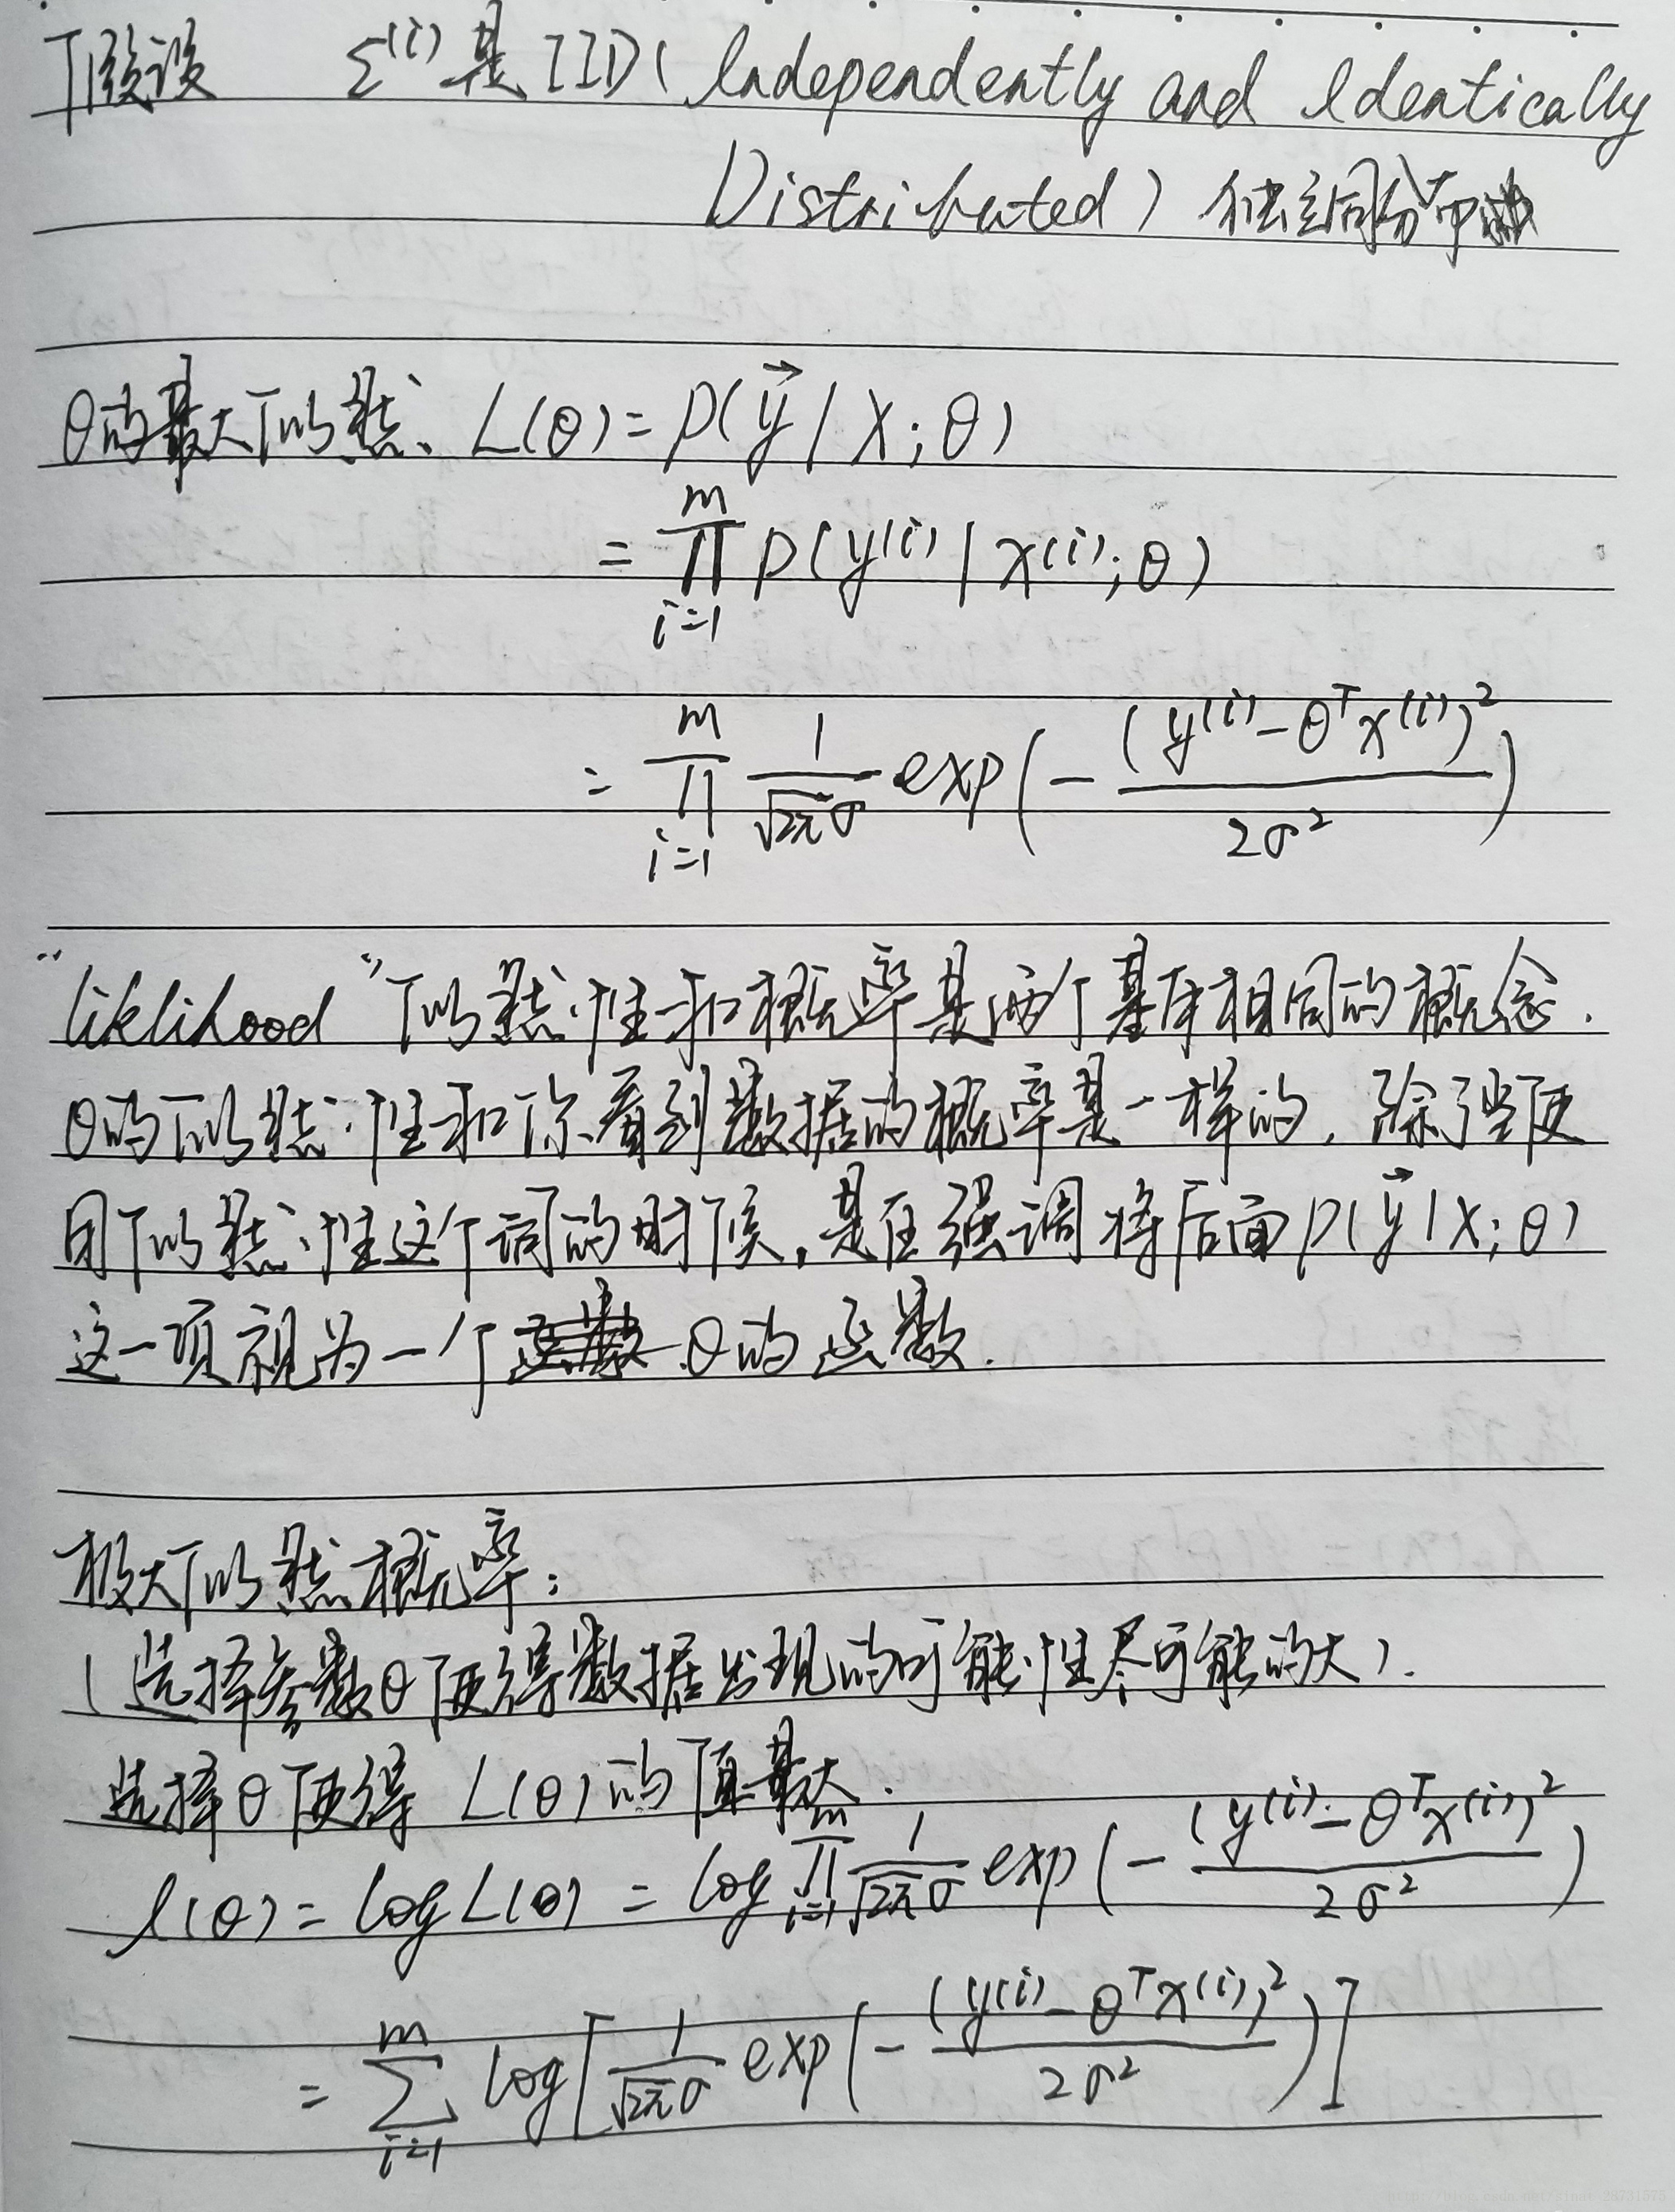 假设 Σ⁽ⁱ⁾是IID( Independently and Identically
Distributed ) 独立同分布
θ的最大似然、L(θ) = P(y⃗ | X; θ)
= ∏_{i=1}^{m} P(y⁽ⁱ⁾ | x⁽ⁱ⁾; θ)
= ∏_{i=1}^{m} \frac{1}{\sqrt{2π}σ} exp(-\frac{(y⁽ⁱ⁾-θᵀx⁽ⁱ⁾)²}{2σ²})
“liklihood”似然性和概率是两个基本相同的概念.
θ的似然性和你看到数据的概率是一样的, 除了当使
用似然性这个词的时候,是在强调将后面P(y⃗|X; θ)
这一项视为一个θ的函数.
极大似然概率:
(选择参数θ使得数据出现的可能性尽可能的大).
选择θ使得 L(θ)的值最大.
l(θ) = log L(θ) = log ∏_{i=1}^{m} \frac{1}{\sqrt{2π}σ} exp(-\frac{(y⁽ⁱ⁾-θᵀx⁽ⁱ⁾)²}{2σ²})
= ∑_{i=1}^{m} log[\frac{1}{\sqrt{2π}σ} exp(-\frac{(y⁽ⁱ⁾-θᵀx⁽ⁱ⁾)²}{2σ²})]